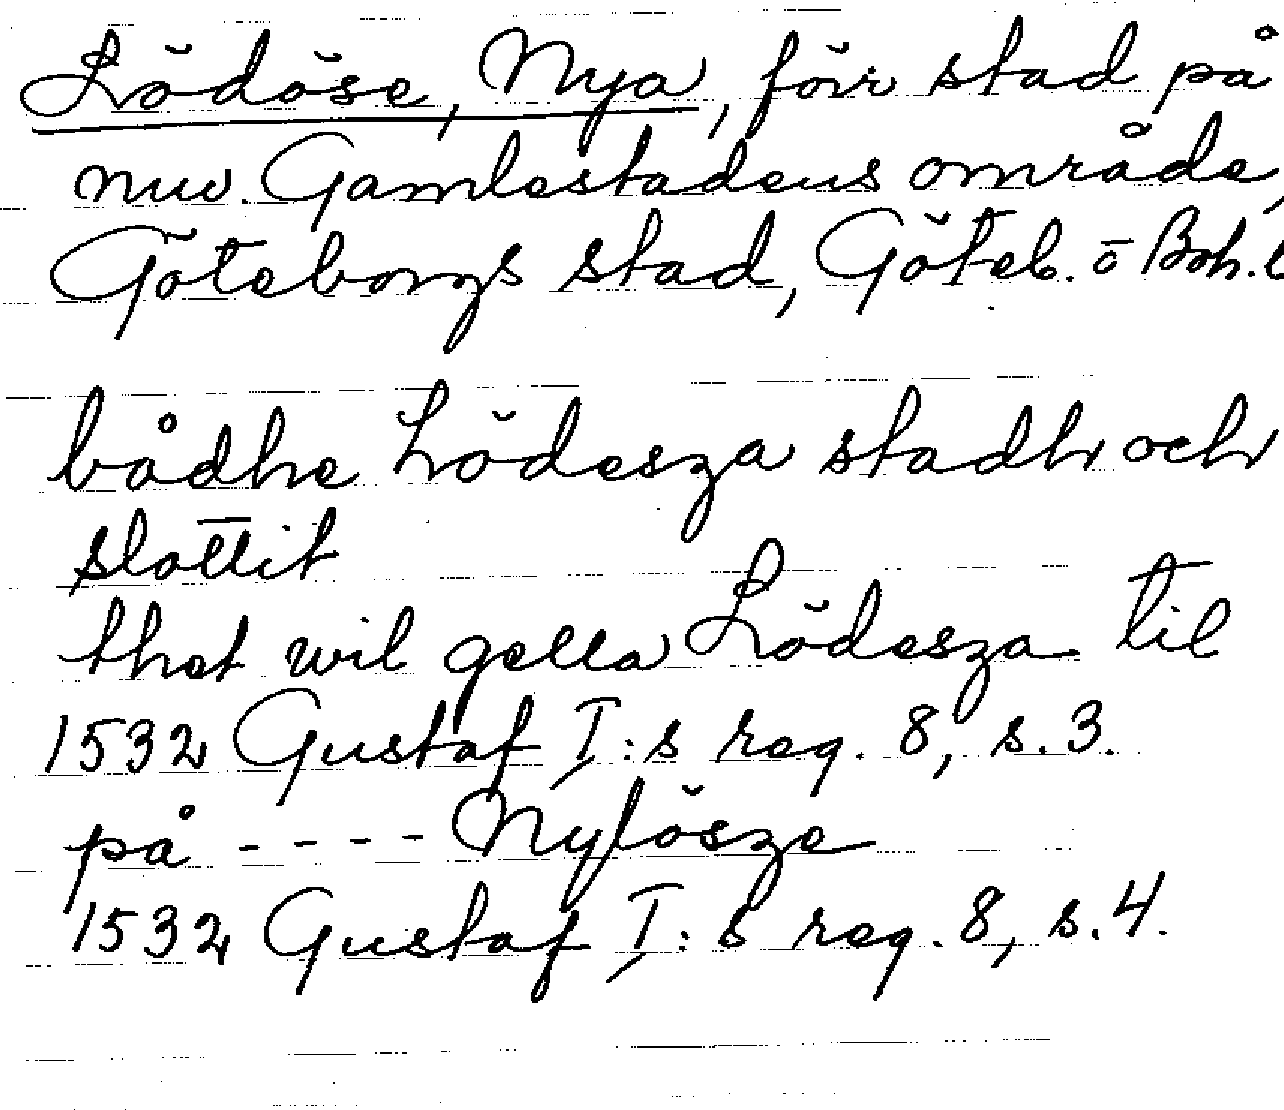 Lödöse, Nya, förr stad på
nuv. Gamlestadens område,
Göteborgs stad, Göteb. o Boh. l
bådhe Lödesza stadh och
slottit
thet wil gella Lödesza til
1532 Gustaf I:s reg. 8, s. 3.
på - - - - Nylösze
1532 Gustaf I:s reg. 8, s. 4.